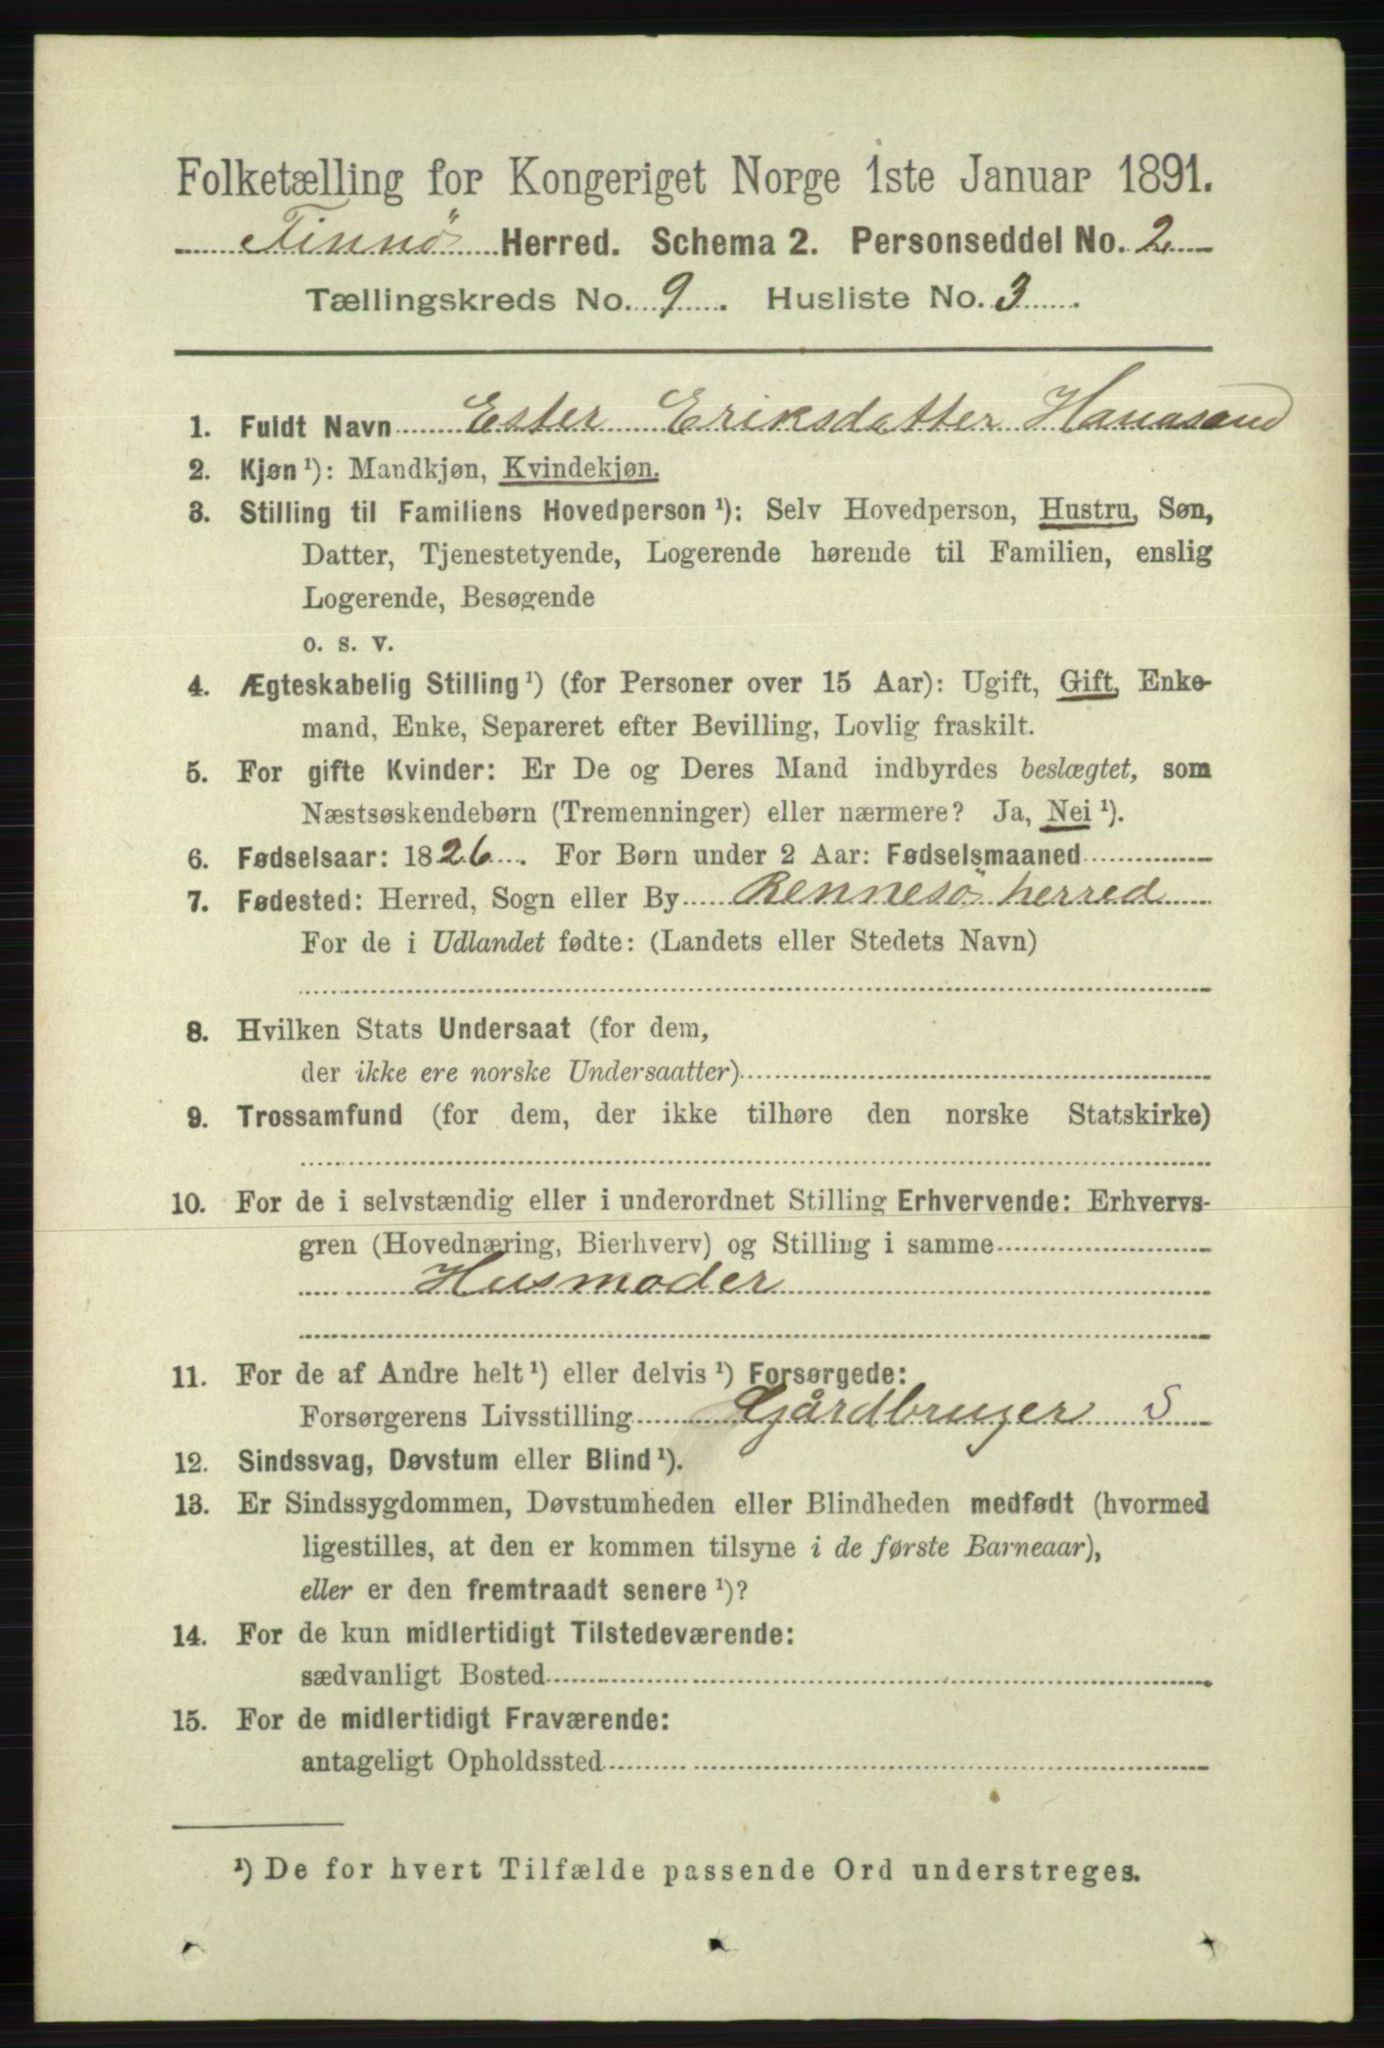 Folketælling for Kongeriget Norge 1ste Januar 1891.
Finnö Herred. Schema 2. Personseddel No. 2
Tællingskreds No. 9. Husliste No. 3.
1. Fuldt Navn Ester Eriksdatter Hanasand
2. Kjøn ¹): Mandkjøn, Kvindekjøn.
3. Stilling til Familiens Hovedperson ¹): Selv Hovedperson, Hustru, Søn,
Datter, Tjenestetyende, Logerende hørende til Familien, enslig
Logerende, Besøgende
o. s. v.
4. Ægteskabelig Stilling ¹) (for Personer over 15 Aar): Ugift, Gift, Enke-
mand, Enke, Separeret efter Bevilling, Lovlig fraskilt.
5. For gifte Kvinder: Er De og Deres Mand indbyrdes beslægtet, som
Næstsøskendebørn (Tremenninger) eller nærmere? Ja, Nei ¹).
6. Fødselsaar: 1826. For Børn under 2 Aar: Fødselsmaaned
7. Fødested: Herred, Sogn eller By Rennesö herred
For de i Udlandet fødte: (Landets eller Stedets Navn)
8. Hvilken Stats Undersaat (for dem,
der ikke ere norske Undersaatter)
9. Trossamfund (for dem, der ikke tilhøre den norske Statskirke)
10. For de i selvstændig eller i underordnet Stilling Erhvervende: Erhvervs-
gren (Hovednæring, Bierhverv) og Stilling i samme
Husmoder
11. For de af Andre helt ¹) eller delvis ¹) Forsørgede:
Forsørgerens Livsstilling Gjårdbruger S
12. Sindssvag, Døvstum eller Blind ¹).
13. Er Sindssygdommen, Døvstumheden eller Blindheden medfødt (hvormed
ligestilles, at den er kommen tilsyne i de første Barneaar),
eller er den fremtraadt senere ¹)?
14. For de kun midlertidigt Tilstedeværende:
sædvanligt Bosted
15. For de midlertidigt Fraværende:
antageligt Opholdssted
¹) De for hvert Tilfælde passende Ord understreges.